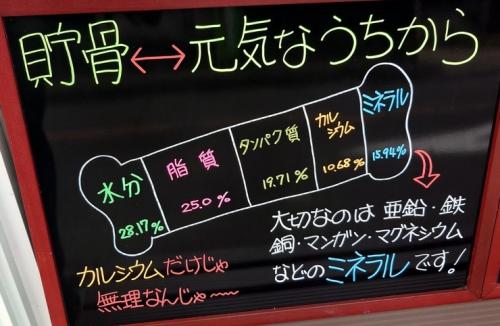 貯骨↔元気なうちから
水分
28.17%
脂質
25.0%
タンパク質
19.71%
カル
シウム
10.68%
ミネラル
15.94%
大切なのは 亜鉛・鉄
銅・マンガン・マグネシウム
などのミネラルです!
カルシウムだけじゃ
無理なんじゃ〜〜